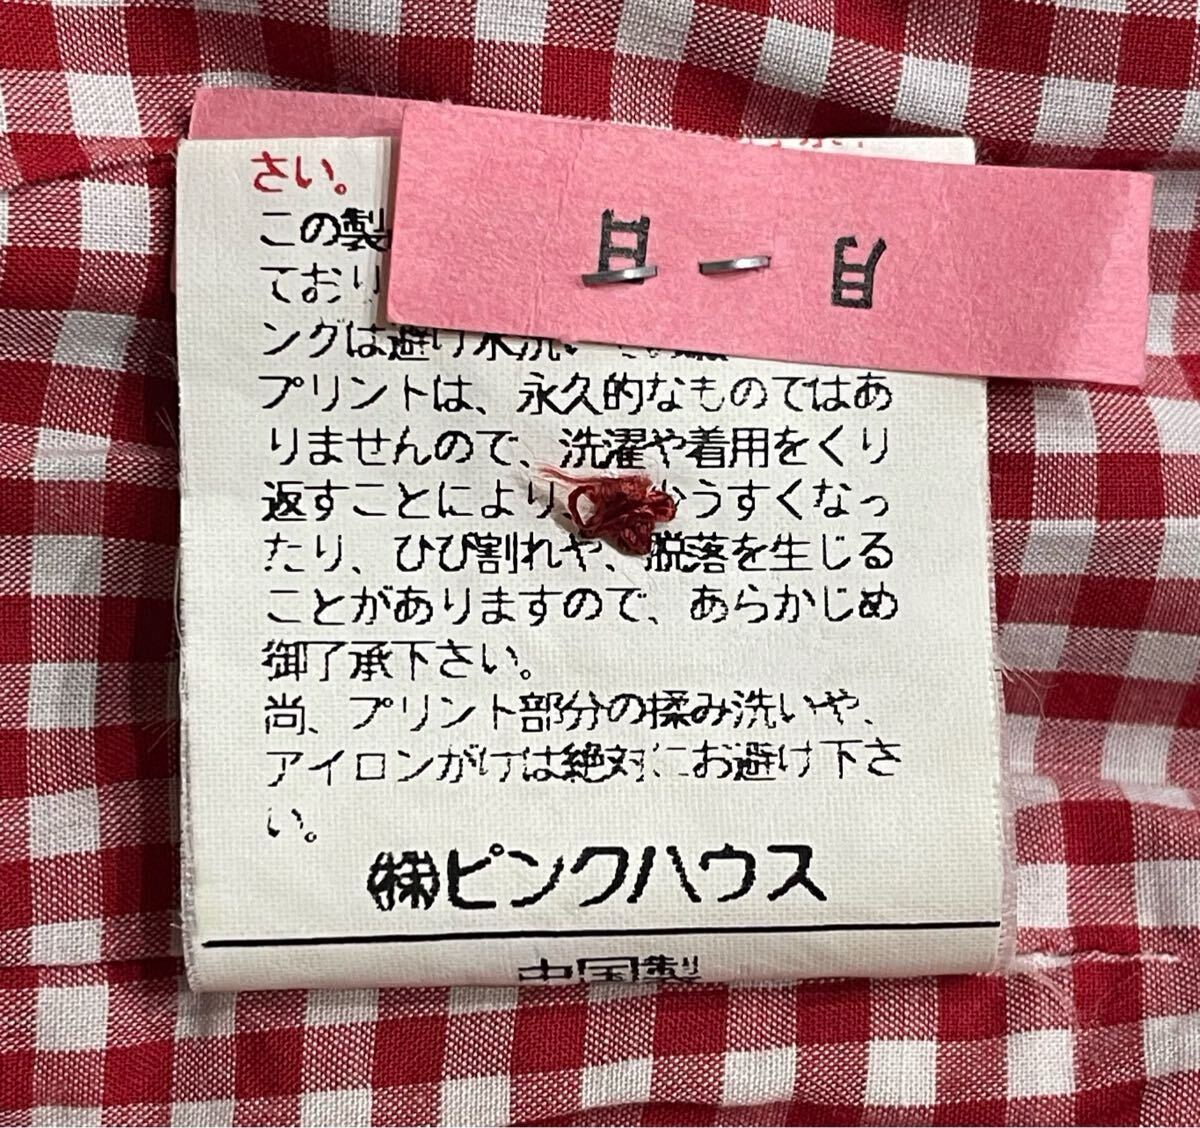 さい。
この製
ており
ングは避け水洗い
プリントは、永久的なものではあ
りませんので、洗濯や着用をくり
返すことにより、 少うすくなっ
たり、ひび割れや、脱落を生じる
ことがありますので、あらかじめ
御了承下さい。
尚、プリント部分の揉み洗いや、
アイロンがけは絶対にお避け下さ
い。
㈱ピンクハウス
中国製